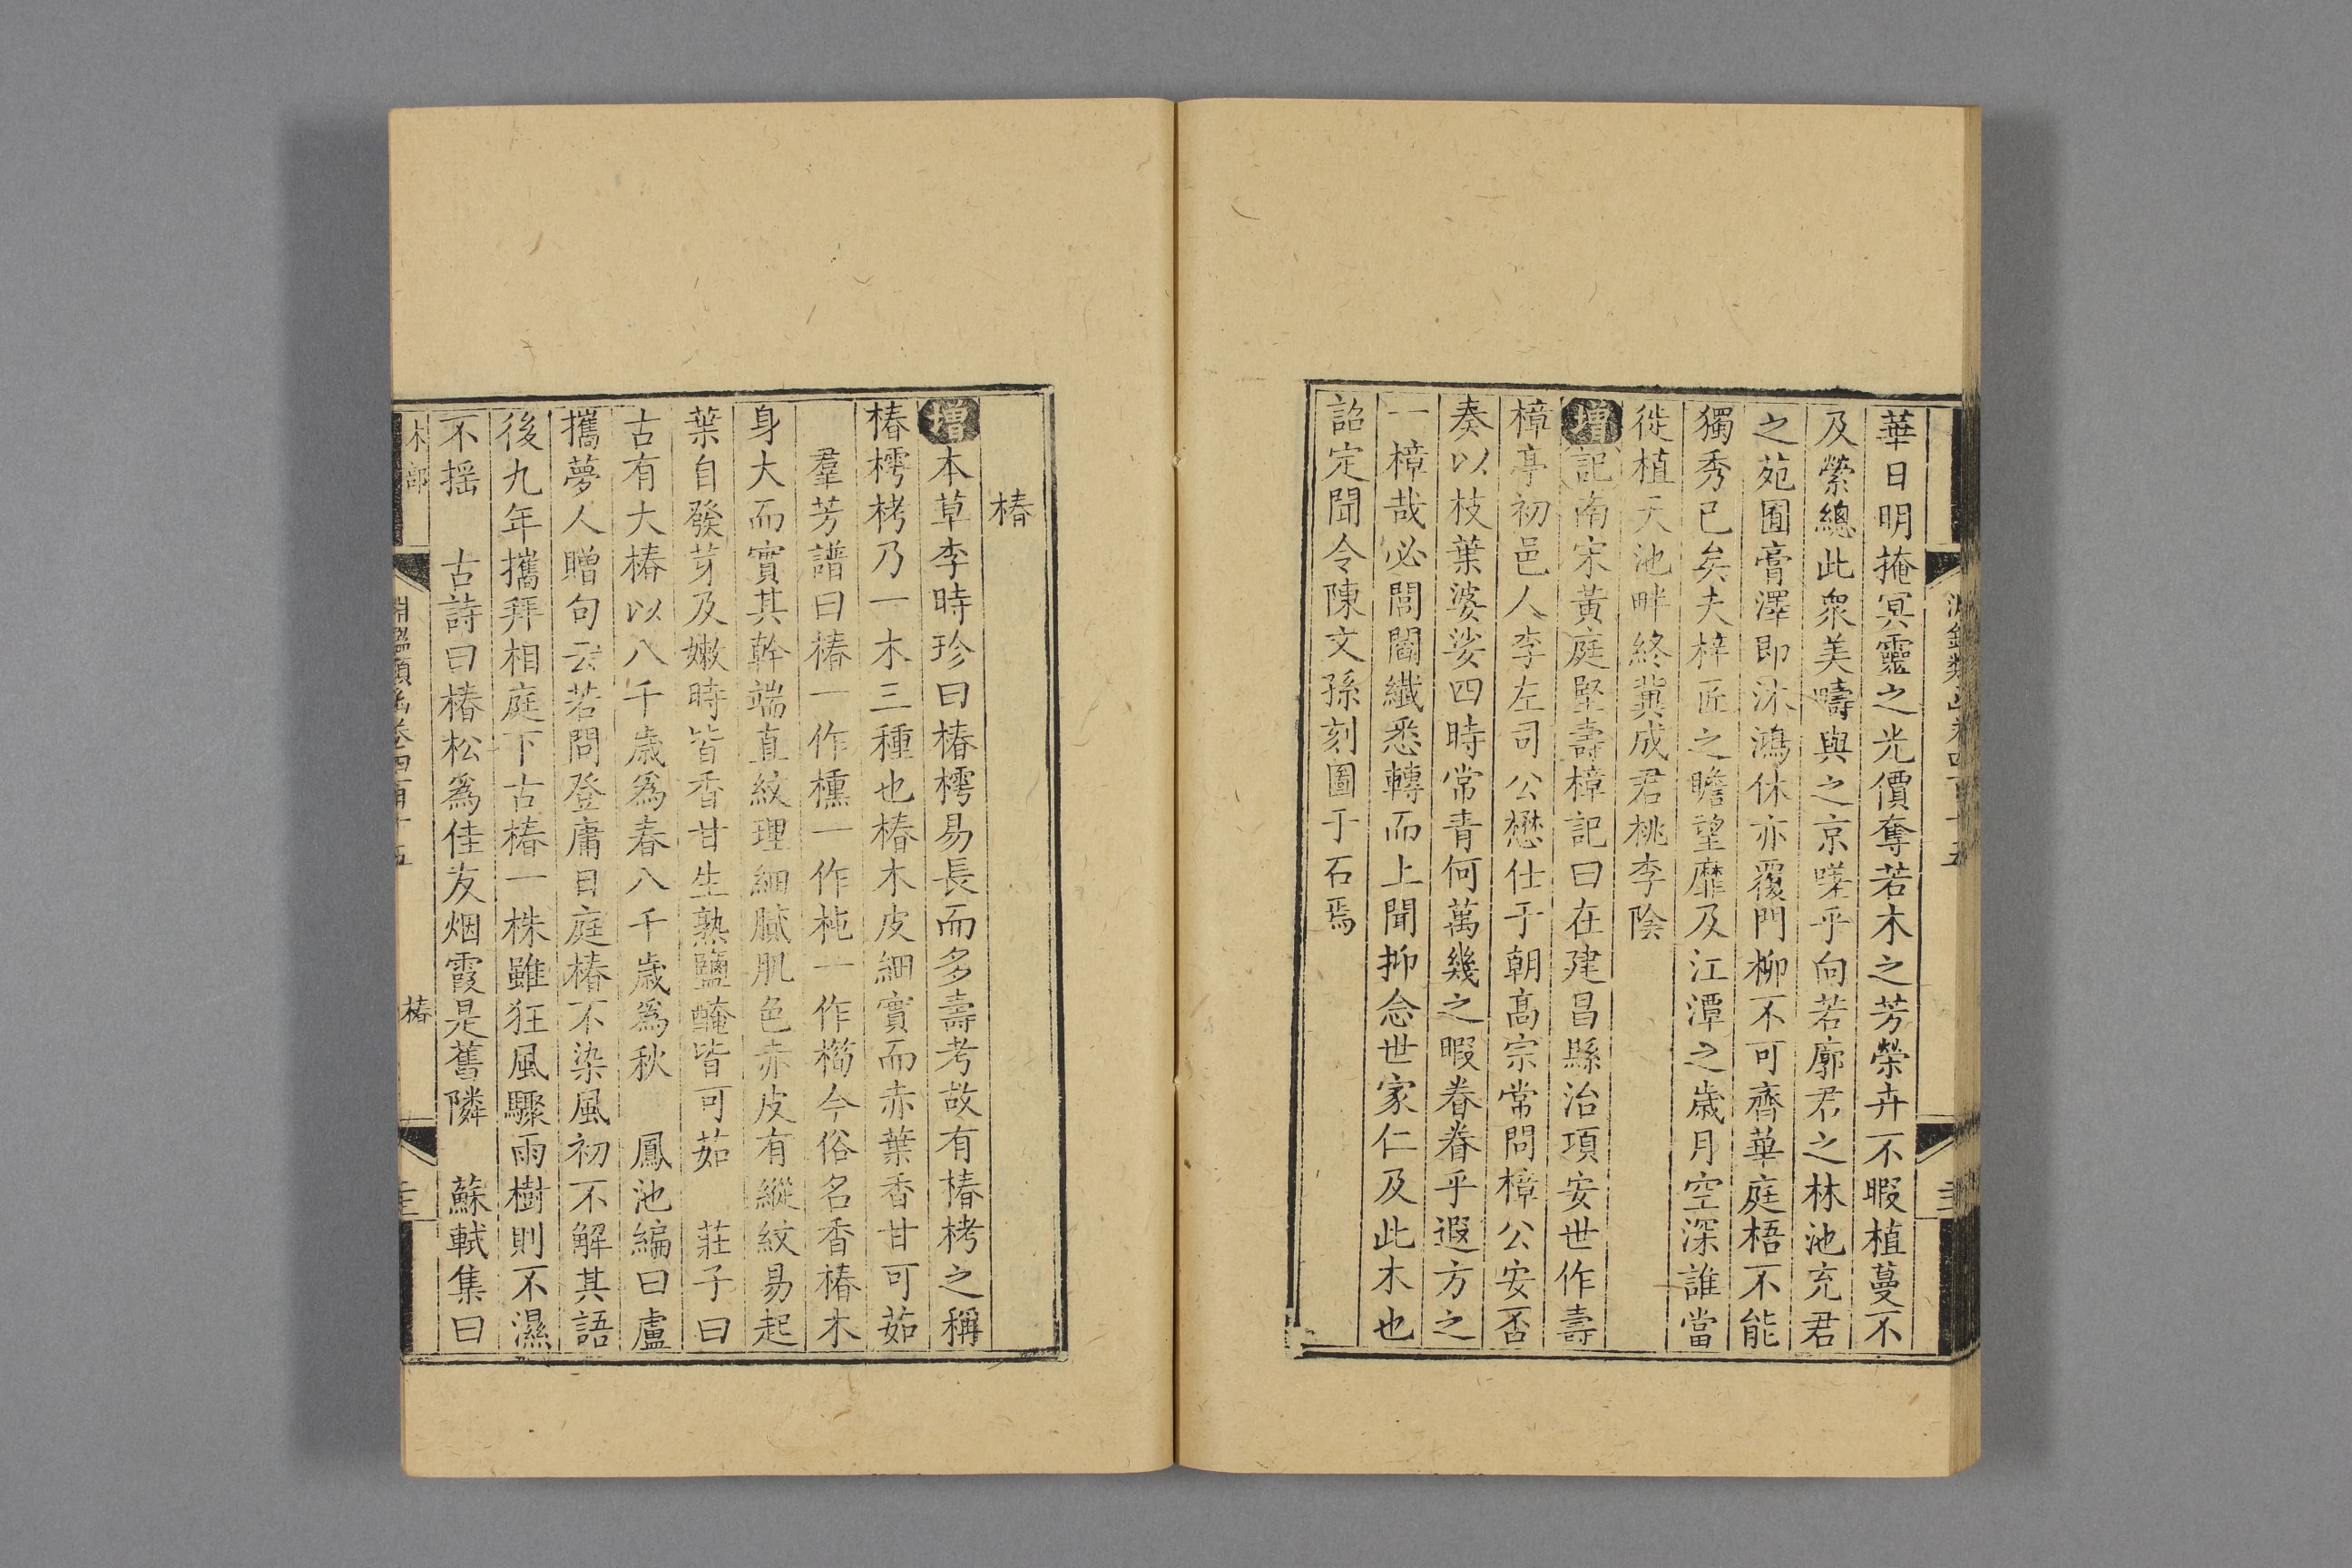 華日明掩冥靈之光價奪若木之芳榮卉不暇植蔓不
及縈總此衆美疇與之京嗟乎向若廓君之林池充君
之苑囿膏澤即沐鴻休亦覆門柳不可齊華庭梧不能
獨秀已矣夫梓匠之瞻望靡及江潭之歲月空深誰當
徙植天池畔終冀成君桃李陰
增記南宋黃庭堅壽樟記曰在建昌縣治項安世作壽
樟亭初邑人李左司公懋仕于朝高宗常問樟公安否
奏以枝葉婆娑四時常青何萬幾之暇眷眷乎遐方之
一樟哉必閭閻纖悉轉而上聞抑念世家仁及此木也
詔定聞令陳文孫刻圖于石焉
椿
增本草李時珍曰椿樗易長而多壽考故有椿栲之稱
椿樗栲乃一木三種也椿木皮細實而赤葉香甘可茹
羣芳譜曰椿一作櫄一作杶一作櫄今俗名香椿木
身大而實其幹端直紋理細膩肌色赤皮有縱紋易起
葉自發芽及嫩時皆香甘生熟鹽醃皆可茹 莊子曰
古有大椿以八千歲爲春八千歲爲秋 鳳池編曰盧
攜夢人贈句云若問登庸日庭椿不染風初不解其語
後九年攜拜相庭下古椿一株雖狂風驟雨樹則不濕
不搖 古詩曰椿松爲佳友烟霞是舊隣 蘇軾集曰
木部
淵鑑類函卷四百十五
椿